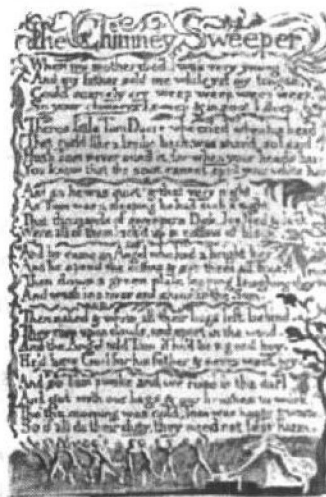 The Chimney Sweeper
When my mother died I was very young
And my father sold me while yet my tongue
Could scarcely cry weep weep weep weep
So your chimneys I sweep & in soot I sleep
Theres little Tom Dacre who cried when his head
That curld like a lambs back was shavd, so I said
Hush Tom never mind it, for when your heads bare
You know that the soot cannot spoil your white
And so he was quiet & that very night
As Tom was a sleeping he had such a sight
That thousands of sweepers Dick, Joe
Were all of them lock'd up in coffins of
And by came an Angel who had a bright
And he opend the coffins & set them all free
Then down a green plain leaping laughing
And wash in a river and shine in the Sun
Then naked & white, all their bags left behind
They rise upon clouds, and sport in the wind
And the Angel told Tom if he'd be a good boy
He'd have God for his father & never want joy
And so Tom awoke and we rose in the dark
And got with our bags & our brushes to work
Tho the morning was cold, Tom was happy & warm
So if all do their duty, they need not fear harm